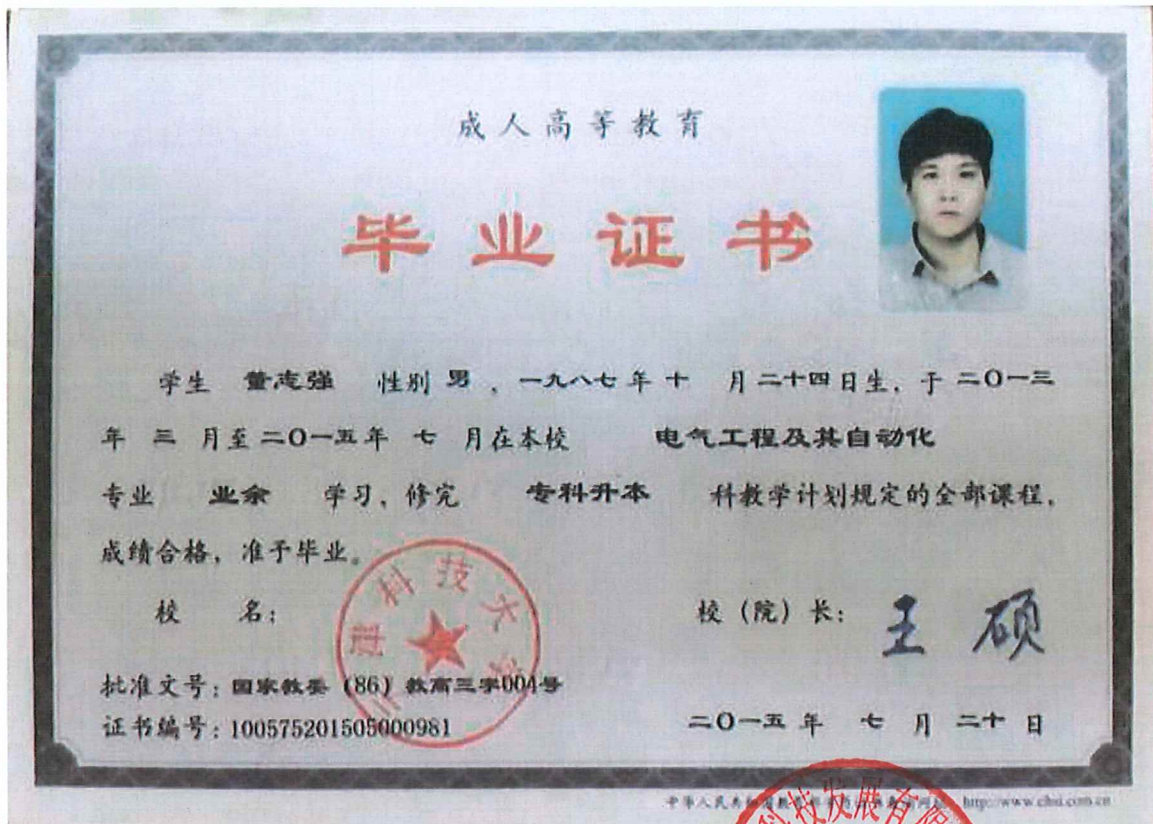 成人高等教育
毕业证书
学生 董志强 性别 男 ，一九八七 年 十 月 二十四 日生，于 二〇一三
年 三 月至 二〇一五 年 七 月在本校 电气工程及其自动化
专业 业余 学习，修完 专科升本 科教学计划规定的全部课程，
成绩合格，准予毕业。
校 名：
科技大学
校（院）长：王 硕
批准文号：国家教委（86）教高三字004号
证书编号：100575201505000981
二〇一五 年 七 月 二十 日
中华人民共和国教育部学历证书查询网址：http://www.chsi.com.cn
科技发展有限